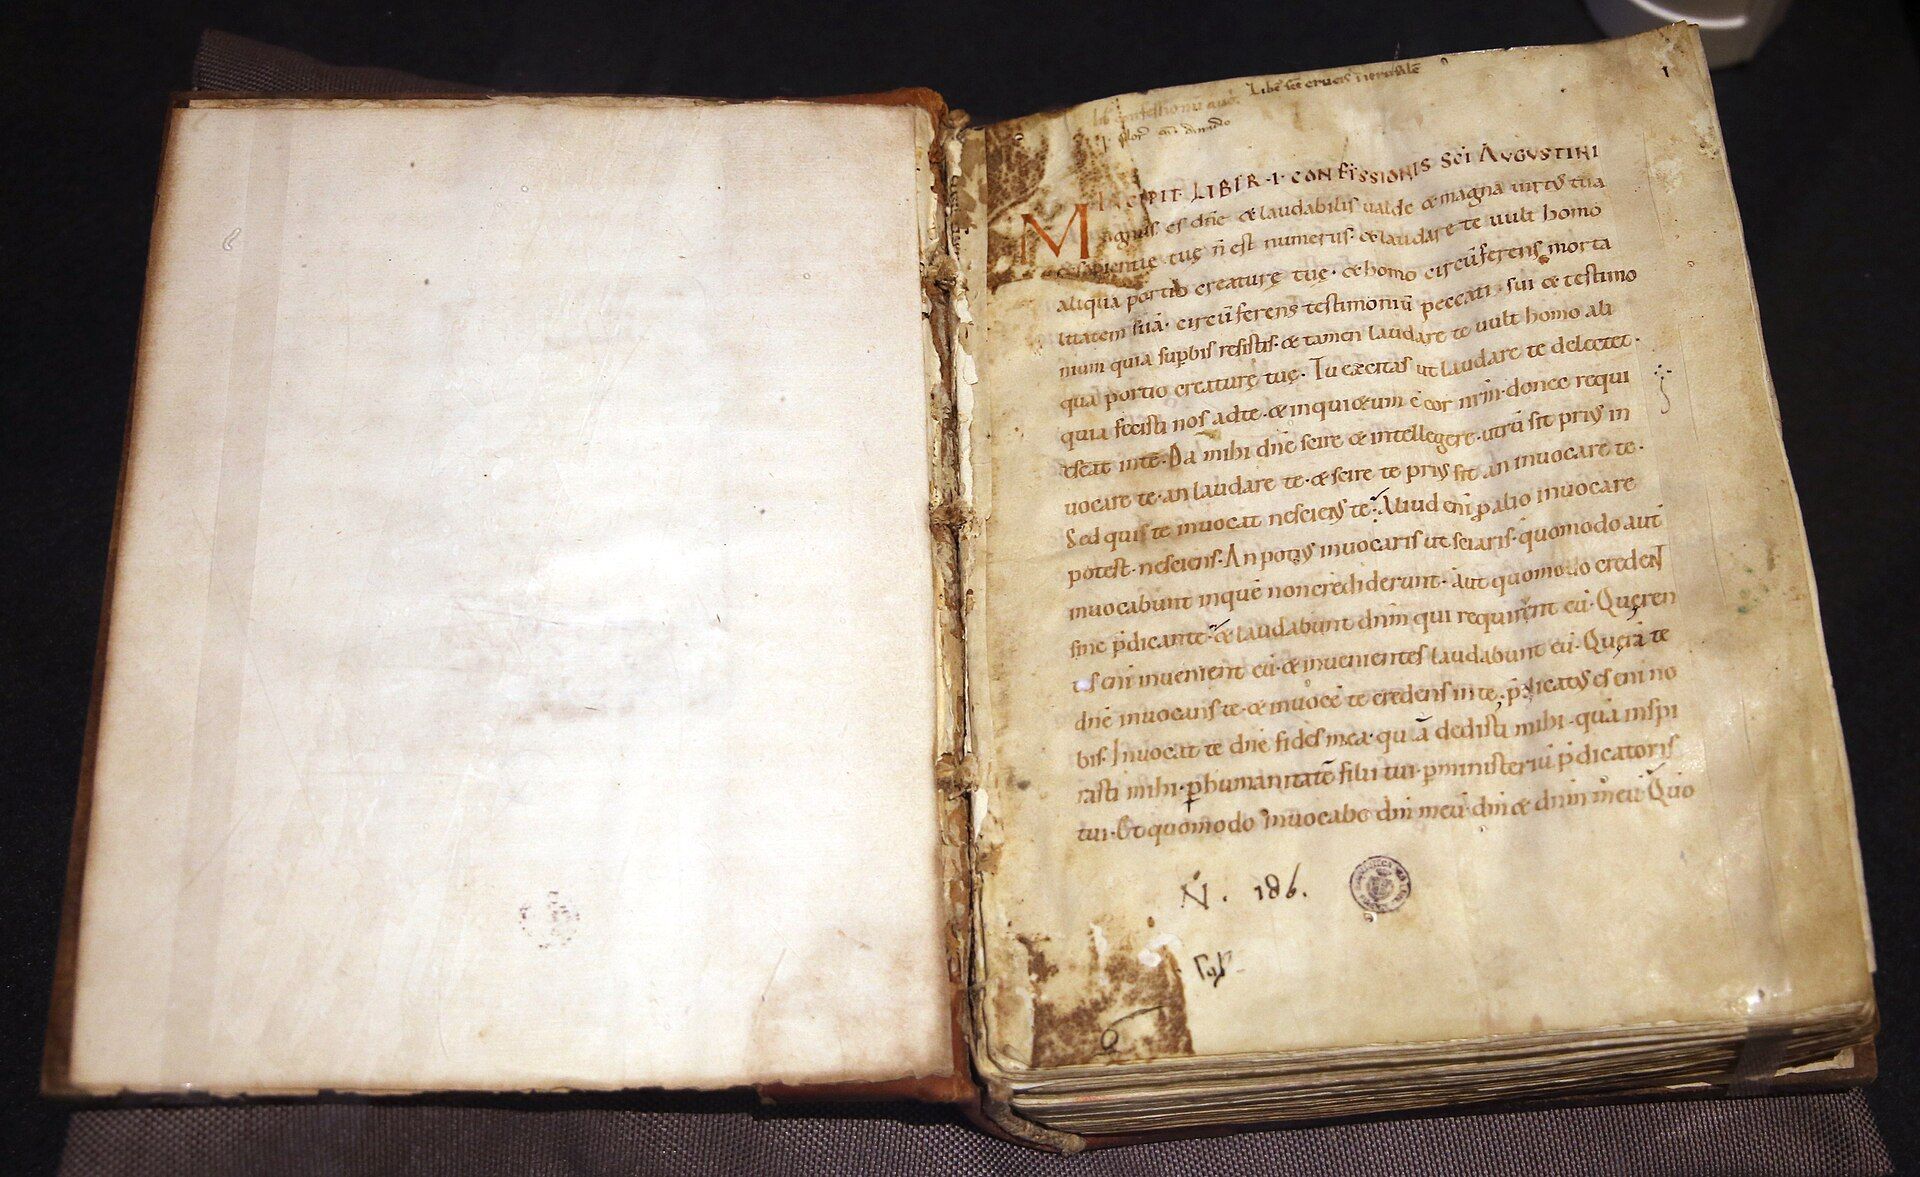 Libe sce crucis ierusale
lib confessionu aug
1
INCIPIT LIBER · I · CONFESSIONIS SCI AUGUSTINI
Magnus es dñe & laudabilis ualde & magna uirtus tua
& sapientię tuę ñ est numerus · & laudare te uult homo
aliqua portio creaturę tuę · & homo circũferens morta
litatem suã · circũferens testimoniũ peccati · sui & testimo
nium quia supbis resistis · & tamen laudare te uult homo ali
qua portio creaturę tuę · Tu excitas ut laudare te delectet ·
quia fecisti nos ad te · & inquietum ẽ cor nrm · donec requi
escat in te · Da mihi dñe scire & intellegere · utrũ sit prius in
uocare te · an laudare te · & scire te prius sit an inuocare te ·
Sed quis te inuocat nesciens te · Aliud eni p alio inuocare
potest · nesciens · An potius inuocaris ut sciaris · quomodo aut
inuocabunt in quẽ non crediderunt · aut quomodo credent
sine p̃dicante · & laudabunt dnm qui requirent eũ · Quęren
tes eni inuenient eũ · & inuenientes laudabunt eũ · Quęrã te
dñe inuocans te · & inuocẽ te credens in te · p̃dicatus es eni no
bis · Inuocat te dñe fides mea · quã dedisti mihi · quã inspi
rasti mihi · p humanitatẽ filii tui · p ministeriũ p̃dicatoris
tui · Et quomodo inuocabo dm meũ · dm & dnm meũ · Quo
N. 186.